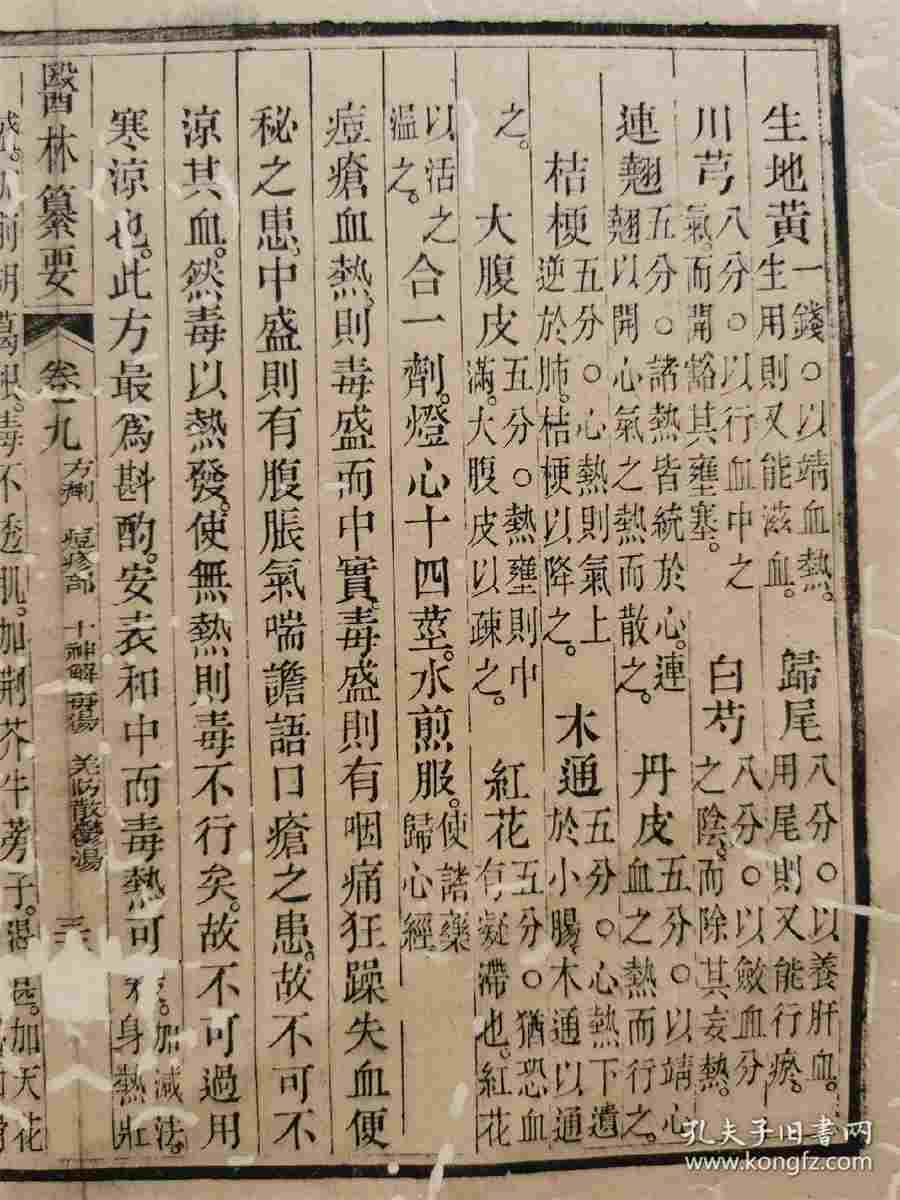 生地黃一錢○以靖血熱。生用則又能滋血。 歸尾八分○以養肝血。用尾則又能行瘀。
川芎八分○以行血中之氣。而開豁其壅塞。 白芍八分○以斂血分之陰。而除其妄熱。
連翹五分○諸熱皆統於心。連翹以開心氣之熱而散之。 丹皮五分○以靖心血之熱而行之。
桔梗五分○心熱則氣上逆於肺。桔梗以降之。 木通五分○心熱下遺於小腸。木通以通
之。 大腹皮五分○熱壅則中滿。大腹皮以疎之。 紅花五分○猶恐血有凝滯也。紅花
以活之溫之。合一劑。燈心十四莖。水煎服。使諸藥歸心經
痘瘡血熱。則毒盛而中實。毒盛則有咽痛狂躁失血便
秘之患。中盛則有腹脹氣喘譫語口瘡之患。故不可不
涼其血。然毒以熱發。使無熱則毒不行矣。故不可過用
寒涼也。此方最為斟酌。安表和中而毒熱可 加減法。身熱壯
醫林纂要 卷 九 方劑 痘疹部 十神解毒湯 羌防散鬱湯 三
前胡葛根。毒不透肌。加荆芥牛蒡子。 加天花
孔夫子旧书网
www.kongfz.com